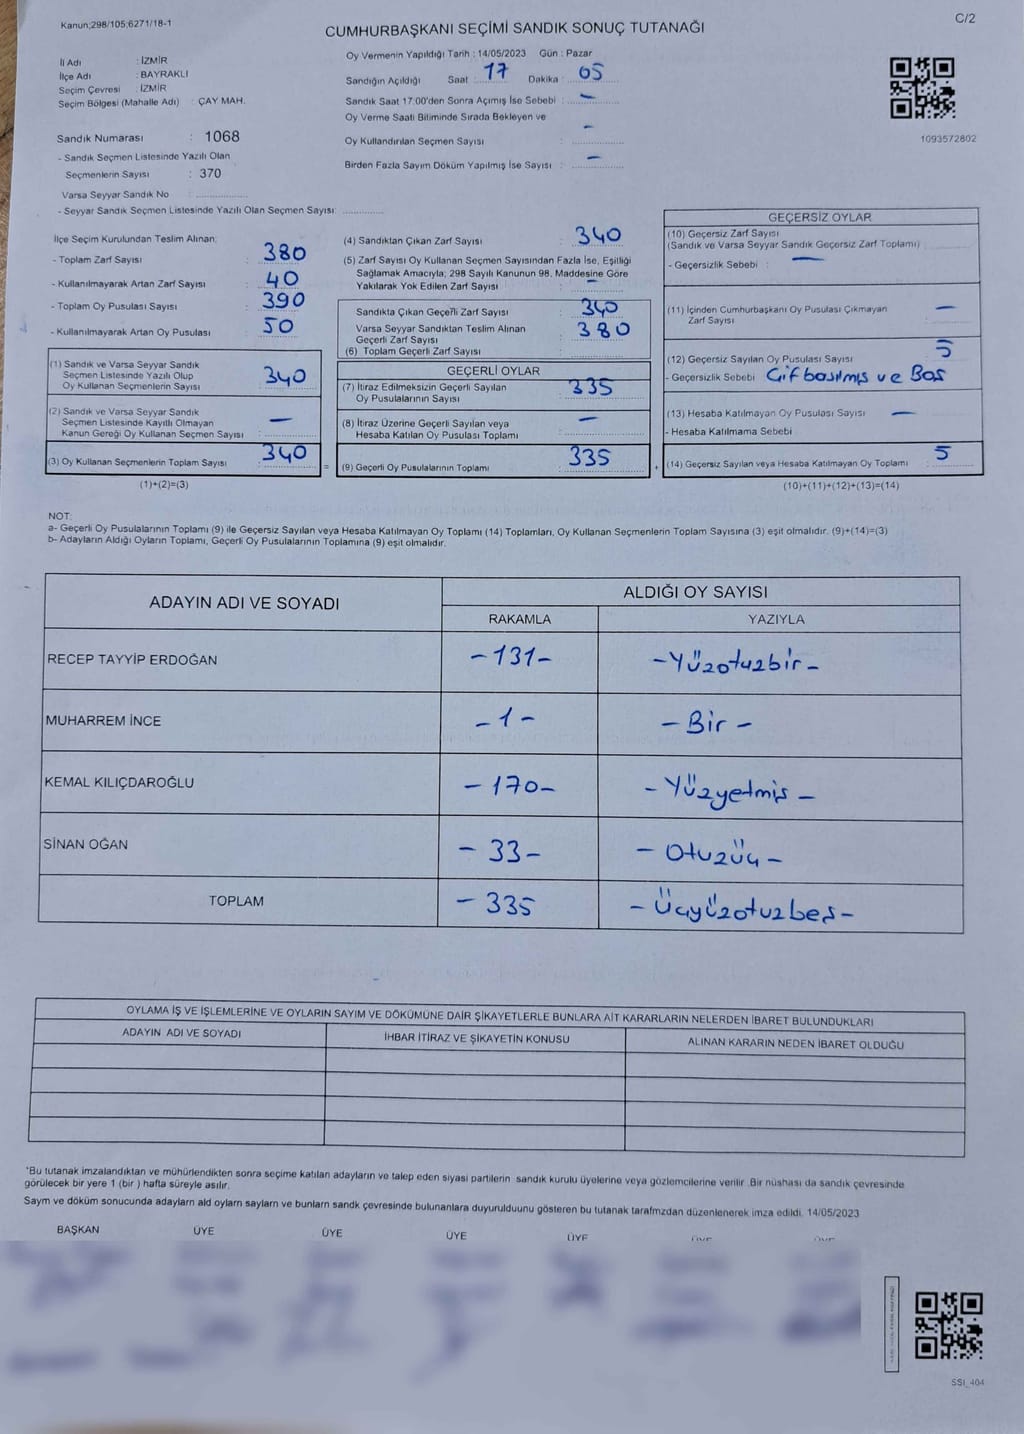 Kanun;298/105;6271/18-1
C/2
CUMHURBAŞKANI SEÇİMİ SANDIK SONUÇ TUTANAĞI
İl Adı : İZMİR
İlçe Adı : BAYRAKLI
Seçim Çevresi : İZMİR
Seçim Bölgesi (Mahalle Adı) : ÇAY MAH.
Sandık Numarası : 1068
- Sandık Seçmen Listesinde Yazılı Olan
Seçmenlerin Sayısı : 370
Varsa Seyyar Sandık No :
- Seyyar Sandık Seçmen Listesinde Yazılı Olan Seçmen Sayısı:
Oy Vermenin Yapıldığı Tarih : 14/05/2023 Gün : Pazar
Sandığın Açıldığı Saat : 17 Dakika : 05
Sandık Saat 17:00'den Sonra Açımış İse Sebebi : -
Oy Verme Saati Bitiminde Sırada Bekleyen ve
Oy Kullandırılan Seçmen Sayısı : -
Birden Fazla Sayım Döküm Yapılmış İse Sayısı : -
1093572802
İlçe Seçim Kurulundan Teslim Alınan:
- Toplam Zarf Sayısı : 380
- Kullanılmayarak Artan Zarf Sayısı : 40
- Toplam Oy Pusulası Sayısı : 390
- Kullanılmayarak Artan Oy Pusulası : 50
(1) Sandık ve Varsa Seyyar Sandık
Seçmen Listesinde Yazılı Olup
Oy Kullanan Seçmenlerin Sayısı : 340
(2) Sandık ve Varsa Seyyar Sandık
Seçmen Listesinde Kayıtlı Olmayan
Kanun Gereği Oy Kullanan Seçmen Sayısı : -
(3) Oy Kullanan Seçmenlerin Toplam Sayısı : 340
(1)+(2)=(3)
(4) Sandıktan Çıkan Zarf Sayısı : 340
(5) Zarf Sayısı Oy Kullanan Seçmen Sayısından Fazla İse, Eşitliği
Sağlamak Amacıyla; 298 Sayılı Kanunun 98. Maddesine Göre
Yakılarak Yok Edilen Zarf Sayısı : -
Sandıkta Çıkan Geçerli Zarf Sayısı : 340
Varsa Seyyar Sandıktan Teslim Alınan
Geçerli Zarf Sayısı : 380
(6) Toplam Geçerli Zarf Sayısı
GEÇERLİ OYLAR
(7) İtiraz Edilmeksizin Geçerli Sayılan
Oy Pusulalarının Sayısı : 335
(8) İtiraz Üzerine Geçerli Sayılan veya
Hesaba Katılan Oy Pusulası Toplamı : -
= (9) Geçerli Oy Pusulalarının Toplamı : 335
GEÇERSİZ OYLAR
(10) Geçersiz Zarf Sayısı
(Sandık ve Varsa Seyyar Sandık Geçersiz Zarf Toplamı) :
- Geçersizlik Sebebi : -
(11) İçinden Cumhurbaşkanı Oy Pusulası Çıkmayan
Zarf Sayısı : -
(12) Geçersiz Sayılan Oy Pusulası Sayısı : 5
- Geçersizlik Sebebi Çift basılmış ve Boş
(13) Hesaba Katılmayan Oy Pusulası Sayısı : -
- Hesaba Katılmama Sebebi
+ (14) Geçersiz Sayılan veya Hesaba Katılmayan Oy Toplamı : 5
(10)+(11)+(12)+(13)=(14)
NOT:
a- Geçerli Oy Pusulalarının Toplamı (9) ile Geçersiz Sayılan veya Hesaba Katılmayan Oy Toplamı (14) Toplamları, Oy Kullanan Seçmenlerin Toplam Sayısına (3) eşit olmalıdır. (9)+(14)=(3)
b- Adayların Aldığı Oyların Toplamı, Geçerli Oy Pusulalarının Toplamına (9) eşit olmalıdır.
ADAYIN ADI VE SOYADI
ALDIĞI OY SAYISI
RAKAMLA YAZIYLA
RECEP TAYYİP ERDOĞAN -131- -Yüzotuzbir-
MUHARREM İNCE -1- -Bir-
KEMAL KILIÇDAROĞLU -170- -Yüzyetmiş-
SİNAN OĞAN -33- -Otuzüç-
TOPLAM -335 -Üçyüzotuzbeş-
OYLAMA İŞ VE İŞLEMLERİNE VE OYLARIN SAYIM VE DÖKÜMÜNE DAİR ŞİKAYETLERLE BUNLARA AİT KARARLARIN NELERDEN İBARET BULUNDUKLARI
ADAYIN ADI VE SOYADI İHBAR İTİRAZ VE ŞİKAYETİN KONUSU ALINAN KARARIN NEDEN İBARET OLDUĞU
*Bu tutanak imzalandıktan ve mühürlendikten sonra seçime katılan adayların ve talep eden siyasi partilerin sandık kurulu üyelerine veya gözlemcilerine verilir. Bir nüshası da sandık çevresinde
görülecek bir yere 1 (bir ) hafta süreyle asılır.
Sayım ve döküm sonucunda adayların ald oyların sayları ve bunlarn sandk çevresinde bulunanlara duyurulduunu gösteren bu tutanak tarafmzdan düzenlenerek imza edildi. 14/05/2023
BAŞKAN ÜYE ÜYE ÜYE ÜYE ÜYE ÜYE
SSI_404